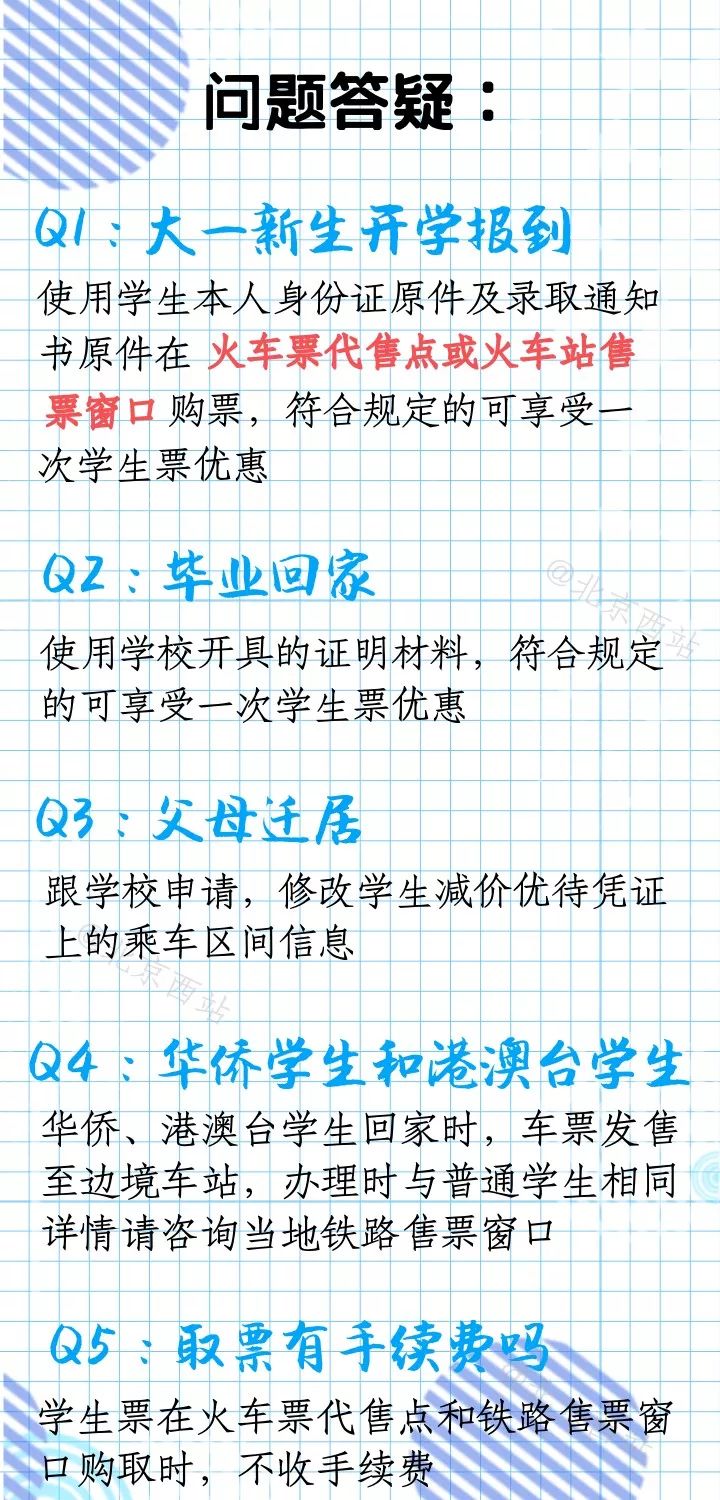 问题答疑：
Q1：大一新生开学报到
使用学生本人身份证原件及录取通知
书原件在 火车票代售点或火车站售
票窗口 购票，符合规定的可享受一
次学生票优惠
Q2：毕业回家
@北京西站
使用学校开具的证明材料，符合规定
的可享受一次学生票优惠
Q3：父母迁居
跟学校申请，修改学生减价优待凭证
上的乘车区间信息
@北京西站
Q4：华侨学生和港澳台学生
华侨、港澳台学生回家时，车票发售
至边境车站，办理时与普通学生相同
详情请咨询当地铁路售票窗口
Q5：取票有手续费吗
学生票在火车票代售点和铁路售票窗
口购取时，不收手续费